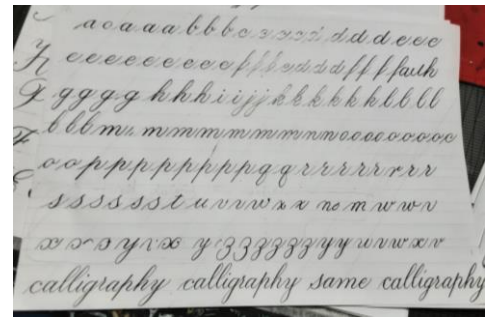 a o a a a b b b c c c c c d d d d e e e
e e e e e e e e e f f f c d d d f f f faith
g g g g g h h h i i j j k k k k k k b b b b
b b b m m m m m m m m n n o o o o o o o o o
o o p p p p p p p p p q q r r r r r r r r
s s s s s s t u v v w x x no m w w v
x x x y v x y z z z z z z y y u v w x v
calligraphy calligraphy same calligraphy